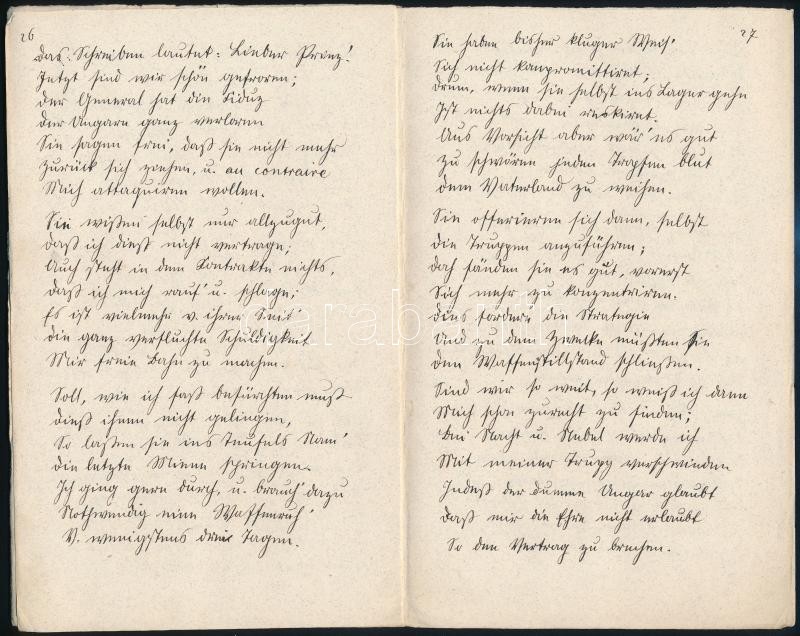 26
Das Schreiben lautet: Lieber Prinz!
Jetzt sind wir schön gefroren;
Der General hat die Siduz
Der Ungarn ganz verloren
Sie sagen frei, daß sie nicht mehr
Zurück sich ziehen, u. au contraire
Mich attaquieren wollen.
Sie wißen selbst nur allzugut,
Daß ich dieß nicht vertrage;
Auch steht in dem Contrakte nichts,
Daß ich mich rauf' u. schlage;
Es ist vielmehr v. ihrer Seit'
Die ganz verfluchte Schuldigkeit
Mir freie Bahn zu machen.
Sollt, wie ich fast befürchten muß
Dieß ihnen nicht gelingen,
So laßen sie ins Teufels Nam'
Die letzte Miene springen.
Ich ging gern durch, u. brauch' dazu
Nothwendig eine Waffenruh'
V. wenigstens drei Tagen.
27
Sie haben bisher kluger Weis'
Sich nicht kompromittiret;
Drum, wenn sie selbst ins Lager gehn
Ist nichts dabei reskiret.
Aus Vorsicht aber wär' es gut
Zu schwören jeden Tropfen Blut
Dem Vaterland zu weihen.
Sie offeriren sich dann, selbst
Die Truppen anzuführen;
Doch fänden sie es gut, vorerst
Sich mehr zu konzentriren.
Dies fordere die Strategie
Und zu dem Zwecke müßten sie
Den Waffenstillstand schließen.
Sind wir so weit, so weiß ich dann
Mich schon zurecht zu finden;
Bei Nacht u. Nebel werde ich
Mit meiner Trupp verschwinden
Indeß der dumme Ungar glaubt
Daß mir die Ehre nicht erlaubt
So den Vertrag zu brechen.
darabanth